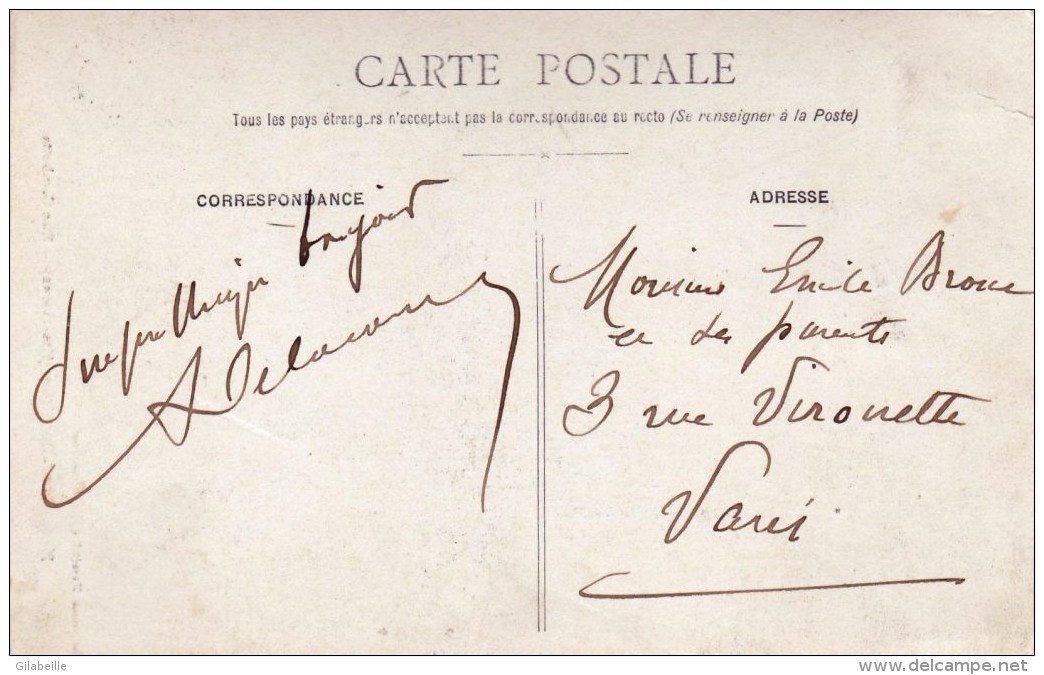 CARTE POSTALE
Tous les pays étrangers n'acceptent pas la correspondance au recto (Se renseigner à la Poste)
CORRESPONDANCE
ADRESSE
bonjour
Sympathique
A Delacour
Monsieur Emile
et ses parents
3 rue Vironette
Paris
Gilabeille
www.delcampe.net